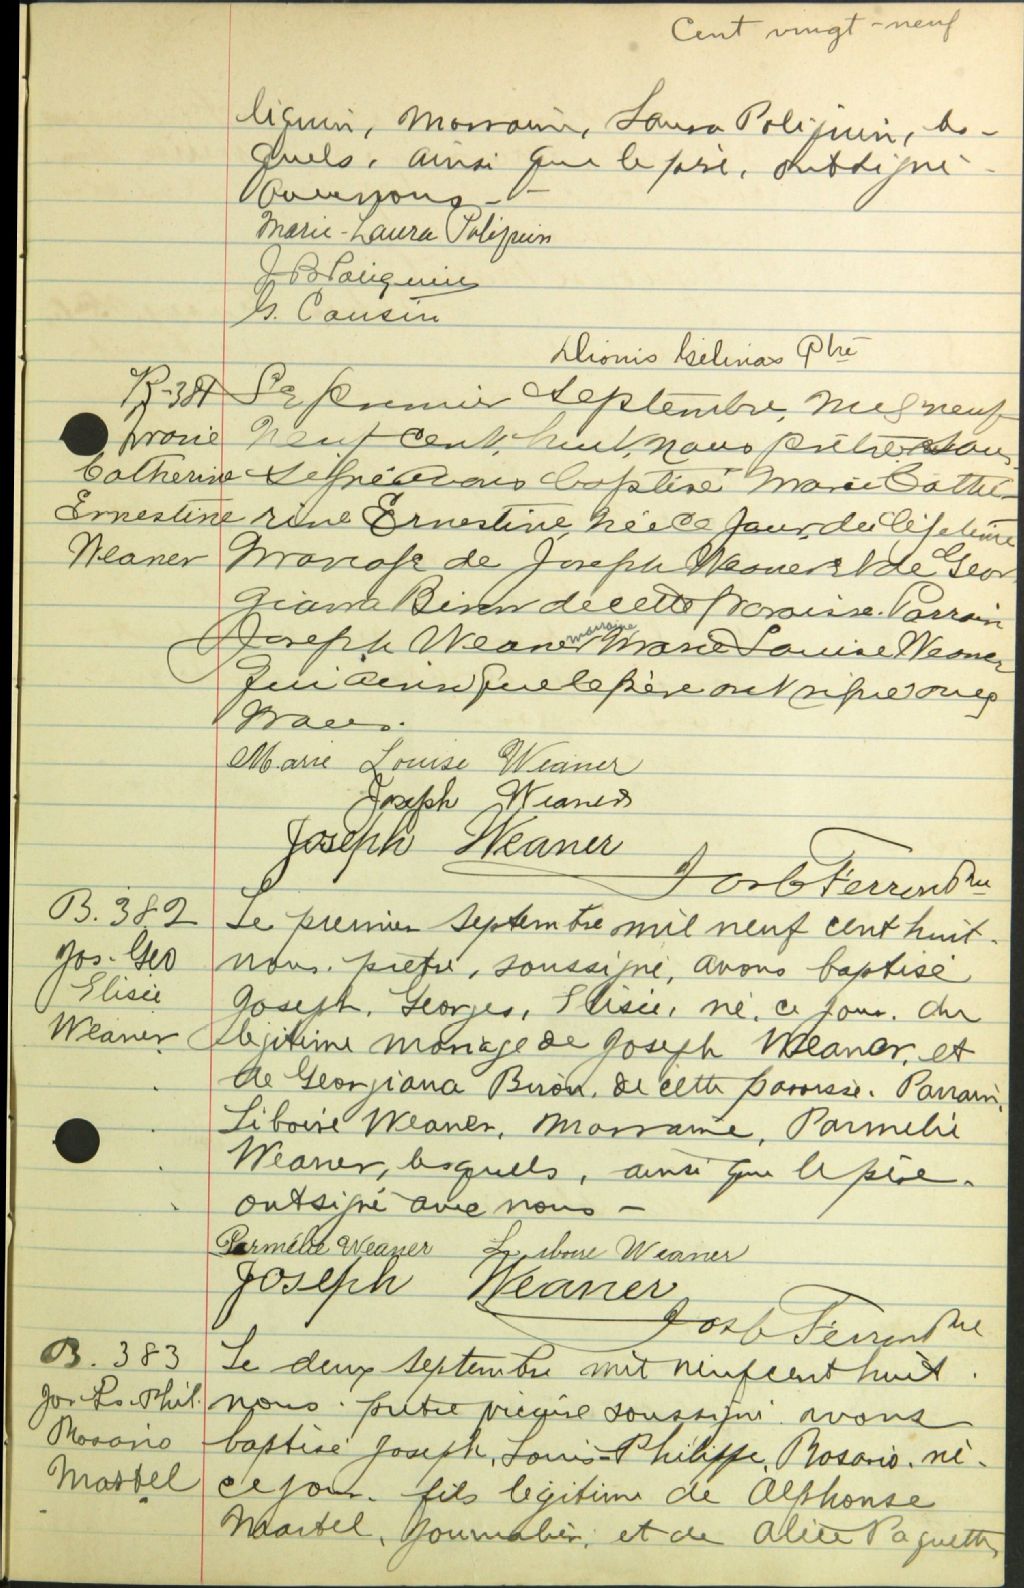 Cent vingt-neuf
liquin, Marraine, Laura Poliquin, les-
quels, ainsi que le père, ont signé
avec nous -
Marie-Laura Poliquin
J B Poliquin
G. Cousin
Dionis Gélinas Ptre
B-381
Marie
Catherine
Ernestine
Weaner
Le premier Septembre, mil neuf
neuf cent huit, nous prêtre sous-
signé avons baptisé Marie Cathé-
rine Ernestine, née ce jour, du légitime
mariage de Joseph Weaner et de Geor-
giana Biron de cette paroisse. Parrain
Joseph Weaner marraine Marie Louise Weaner
qui ainsi que le père ont signé avec
nous.
Marie Louise Weaner
Joseph Weaner
Joseph Weaner
Jos Ferron Ptre
B. 382
Jos. Geo
Elisée
Weaner
Le premier septembre mil neuf cent huit.
nous. prêtre, soussigné, avons baptisé
Joseph, Georges, Elisée, né, ce jour. du
légitime mariage de Joseph Weaner, et
de Georgiana Biron, de cette paroisse. Parrain,
Liboire Weaner, Marraine, Parmélie
Weaner, lesquels, ainsi que le père.
ont signé avec nous -
Parmélie Weaner Liboire Weaner
Joseph Weaner
Jos Ferron Ptre
B. 383
Jos. Ls. Phil.
Rosario
Martel
Le deux septembre mil neuf cent huit.
nous. prêtre vicaire soussigné avons
baptisé Joseph, Louis-Philippe, Rosario. né.
ce jour. fils légitime de Alphonse
Martel, journalier, et de Alice Paquette